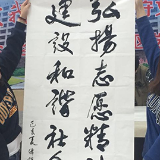 弘揚志愿精神
建設和谐社会
己亥夏